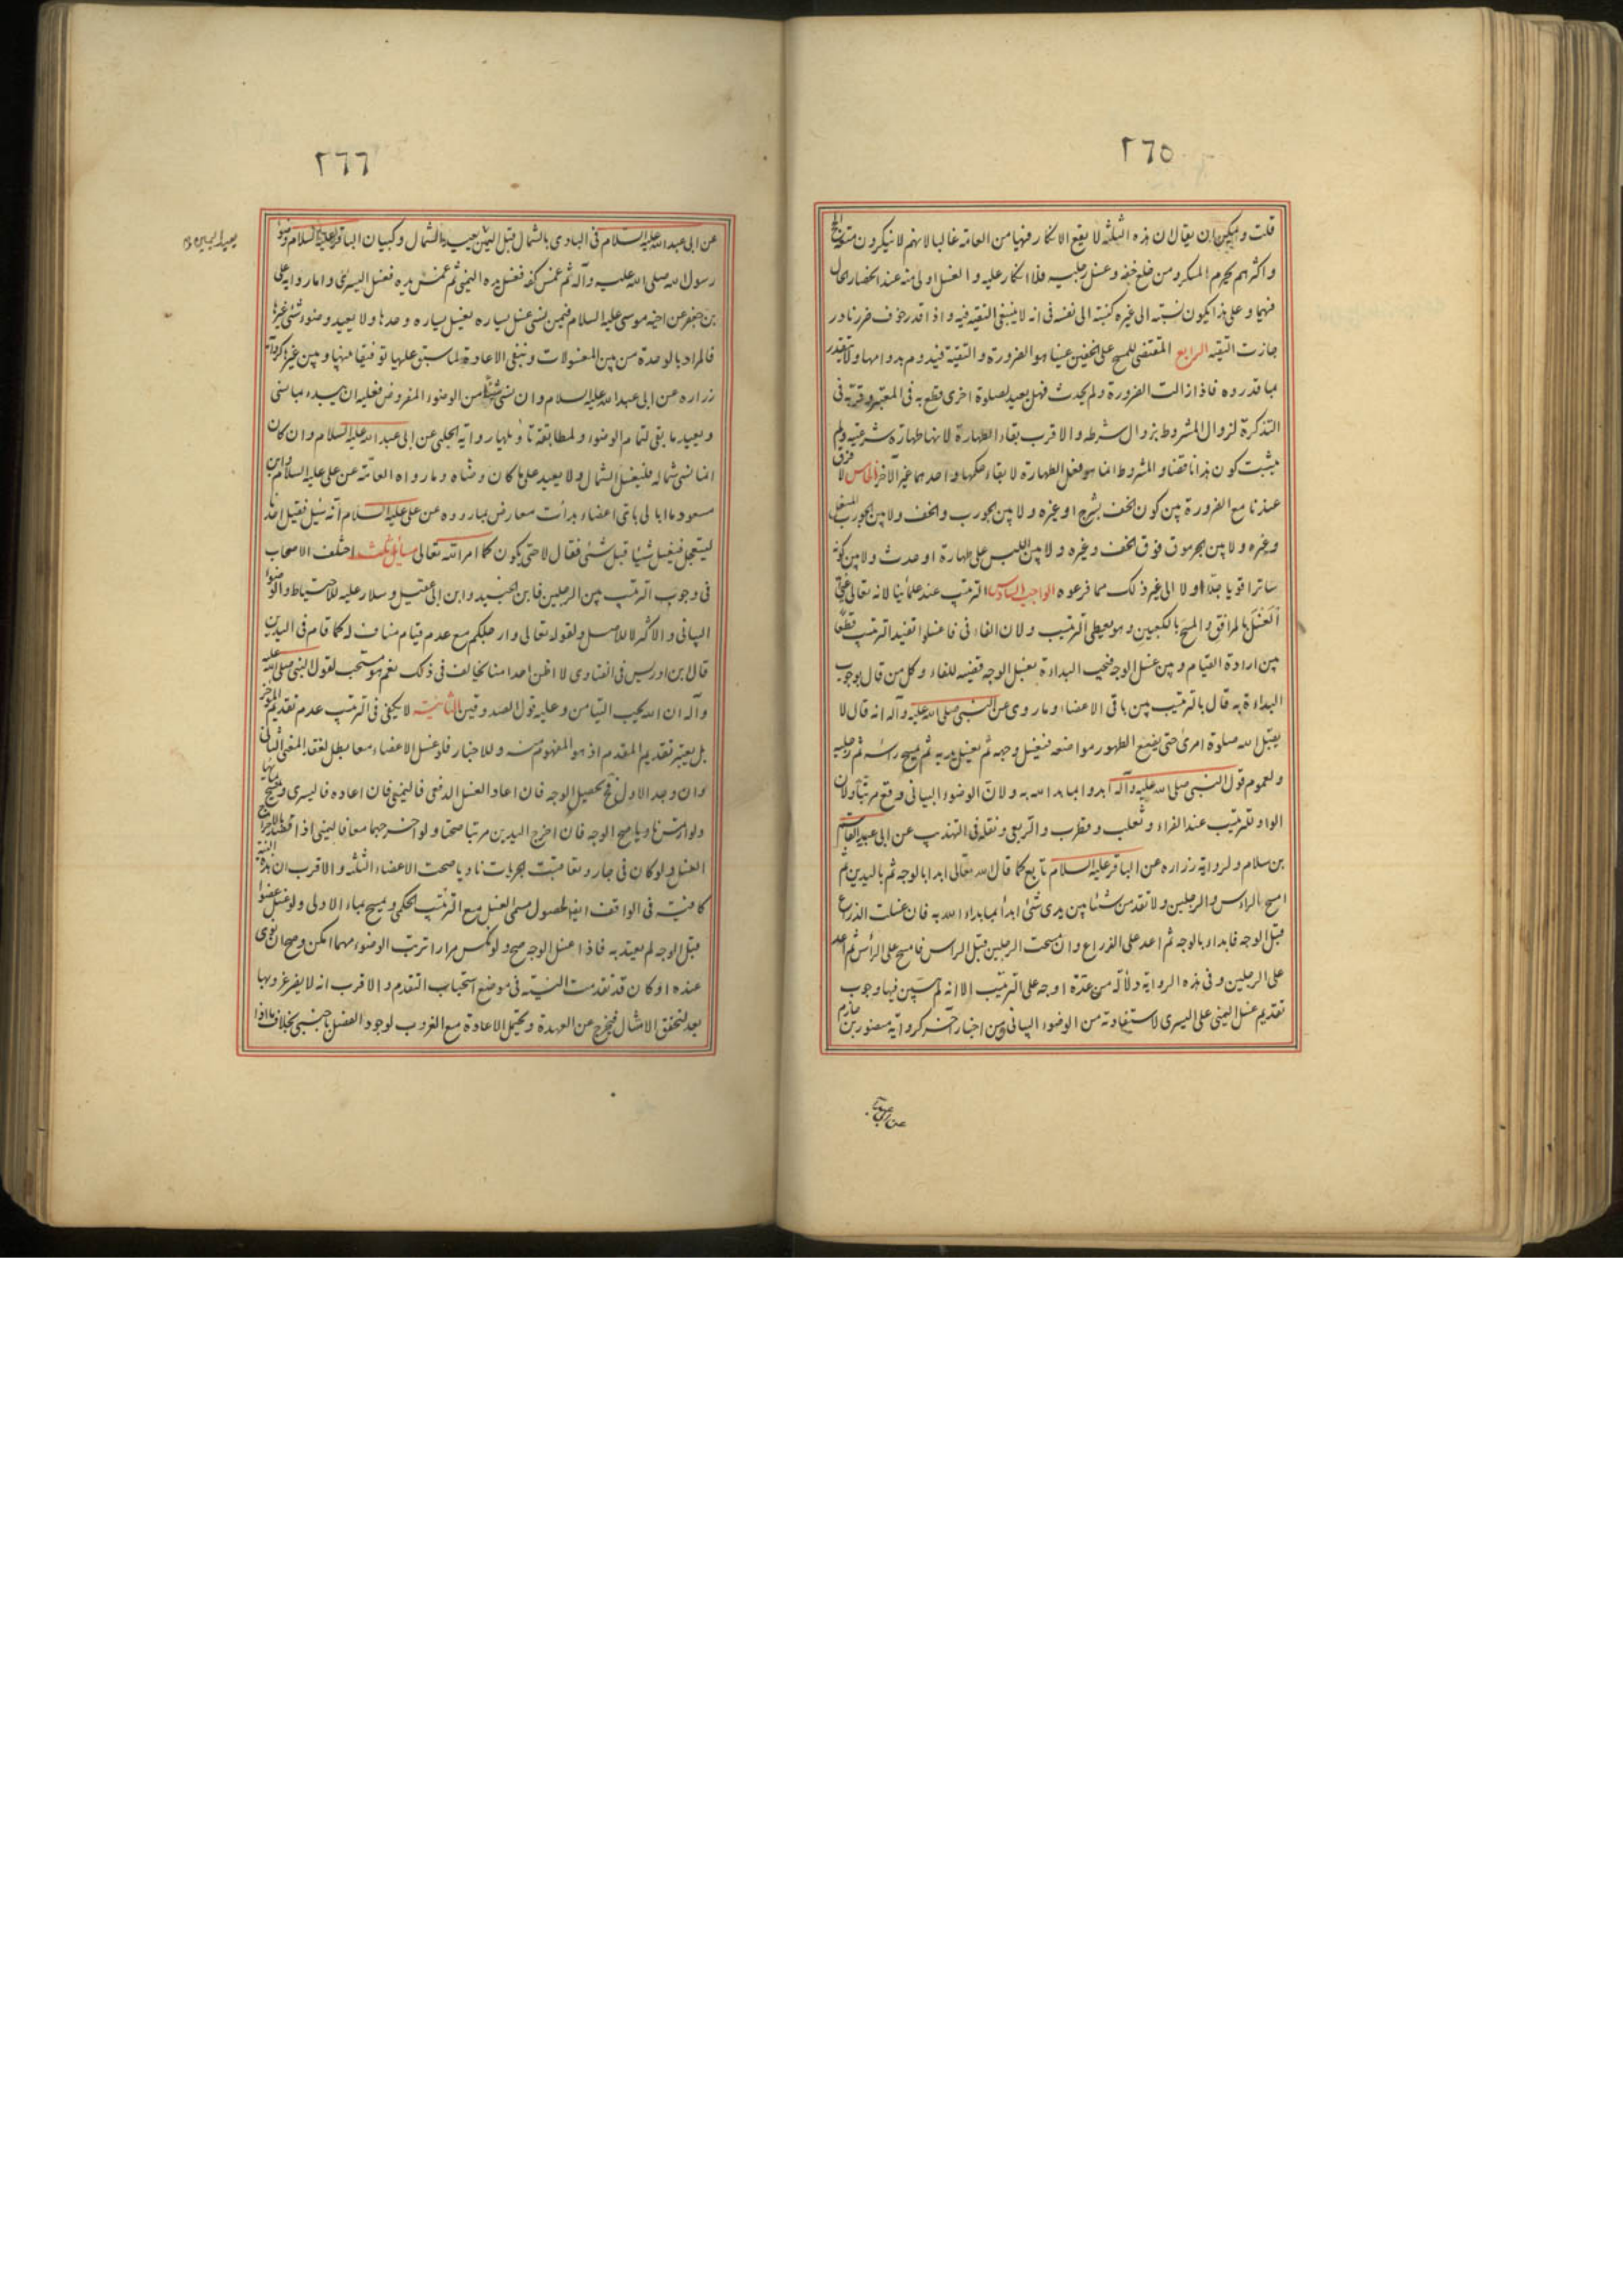 ٢٦٥
قلت ويمكن ان يقال ان هذه الثلثة لا يقع الانكار فيها من العامة غالبا لانهم لا ينكرون متعة الحج
واكثرهم يحرم المسكر ومن خلع خفه وغسل رجليه فلا انكار عليه والغسل اولى منه عند انحصار الحال
فيهما وعلى هذا يكون نسبته الى غيره كنسبته الى نفسه في انه لا ينبغي التقية فيه واذا قدر خوف ضرر نادر
جازت التقية الرابع المقتضي للمسح على الخفين عينا هو الضرورة والتقية فيدوم بدوامها ولا يتقدر
بما قدروه فاذا زالت الضرورة ولم يحدث فهل يعيد لصلوة اخرى قطع به في المعتبر وقربه في
التذكرة لزوال المشروط بزوال شرطه والاقرب بقاء الطهارة لانها طهارة شرعية ولم
يثبت كون هذا ناقضا والمشروط انما هو فعل الطهارة لا بقاء حكمها واحدهما غير الآخر الخامس لا فرق
عندنا مع الضرورة بين كون الخف بشرج او غيره ولا بين الجورب والخف ولا بين الجورب المنعل
وغيره ولا بين الجرموق فوق الخف وغيره ولا بين اللبس على طهارة او حدث ولا بين كونه
ساترا قويا حلالا او لا الى غير ذلك مما فرعوه الواجب السادس الترتيب عند علمائنا لانه تعالى غيى
الغسل بالمرافق والمسح بالكعبين وهو يعطي الترتيب ولان الفاء في فاغسلوا تفيد الترتيب قطعا
بين ارادة القيام وبين غسل الوجه فيجب البداءة بغسل الوجه قضية للفاء وكل من قال بوجوب
البداءة به قال بالترتيب بين باقي الاعضاء وما روى عن النبي صلى الله عليه وآله انه قال لا
يقبل الله صلوة امرئ حتى يضع الطهور مواضعه فيغسل وجهه ثم يغسل يديه ثم يمسح رأسه ثم رجليه
ولعموم قول النبي صلى الله عليه وآله ابدءوا بما بدا الله به ولان الوضوء البياني وقع مرتبا ولان
الواو للترتيب عند الفراء وثعلب وقطرب والربعي ونقله في التهذيب عن ابي عبيد القاسم
بن سلام ولرواية زرارة عن الباقر عليه السلام تابع كما قال الله تعالى ابدا بالوجه ثم باليدين ثم
امسح بالراس والرجلين ولا تقدمن شيئا بين يدي شئ ابدأ بما بداء الله به فان غسلت الذراع
قبل الوجه فابداء بالوجه ثم اعد على الذراع وان مسحت الرجلين قبل الراس فامسح على الرأس ثم اعد
على الرجلين وفي هذه الرواية دلالة من عدة اوجه على الترتيب الا انه لم يبين فيها وجوب
تقديم غسل اليمنى على اليسرى لاستفادته من الوضوء البياني ومن اخبار أخر كرواية منصور بن حازم
عن ابي عبد
٢٦٦
عن ابي عبد الله عليه السلام في البادي بالشمال قبل اليمين يعيد بالشمال وكبيان الباقر عليه السلام وضوء
رسول الله صلى الله عليه وآله ثم غمس كفه فغسل يده اليمنى ثم غمس يده فغسل اليسرى واما رواية علي
بن جعفر عن اخيه موسى عليه السلام فيمن نسي غسل يساره يغسل يساره وحدها ولا يعيد وضوء شئ غيرها
فالمراد بالوحدة من بين المغسولات وينفي الاعادة لما سبق عليها توفيقا بينها وبين غيرها كرواية
زرارة عن ابي عبد الله عليه السلام وان نسي شيئا من الوضوء المفروض فعليه ان يبدء بما نسي
ويعيد ما بقي لتمام الوضوء ولمطابقة تأويلها رواية الحلبي عن ابي عبد الله عليه السلام وان كان
انما نسي شماله فليغسل الشمال ولا يعيد على ما كان وضأه وما رواه العامة عن علي عليه السلام وابن
مسعود ما ابالي باي اعضاء بدأت معارض بما رووه عن علي عليه السلام انه سئل فقيل احدنا
يستعجل فيغسل شيئا قبل شئ فقال لا حتى يكون كما امر الله تعالى مسائل ثلث اختلف الاصحاب
في وجوب الترتيب بين الرجلين فابن الجنيد وابن ابي عقيل وسلار عليه للاحتياط والوضوء
البياني والاكثر لا للاصل ولقوله تعالى وارجلكم مع عدم قيام مناف له كما قام في اليدين
قال ابن ادريس في الفتاوى لا اظن احدا منا يخالف في ذلك نعم هو مستحب لقول النبي صلى الله عليه
وآله ان الله يحب التيامن وعليه قول الصدوقين الثانية لا يكفي في الترتيب عدم تقديم المؤخر
بل يعتبر تقديم المقدم اذ هو المفهوم منه وللاخبار فلو غسل الاعضاء معا بطل لفقد المعنى الثاني
وان وجد الاول فيحصل الوجه فان اعاد الغسل الدفعي فاليمنى فان اعاده فاليسرى ويمسح بمائها
ولو ارتمس ناويا صح الوجه فان اخرج اليدين مرتبا صحتا ولو اخرجهما معا فاليمنى اذا قصد بالاخراج
الغسل ولو كان في جار وتعاقبت الجريات ناويا صحت الاعضاء الثلثة والاقرب ان هذه النية
كافية في الواقف ايضا لحصول مسمى الغسل مع الترتيب الحكمي ويمسح بماء الاولى ولو غسل عضوا
قبل الوجه لم يعتد به فاذا غسل الوجه صح ولو نكس مرارا ترتب الوضوء مهما امكن وصح ان نوى
عنده او كان قد تقدمت النية في موضع استحباب التقدم والاقرب انه لا يضر عزوبها
بعد لتحقق الامتثال فيخرج عن العهدة ويحتمل الاعادة مع العزوب لوجود الفصل باجنبي بخلاف ما اذا